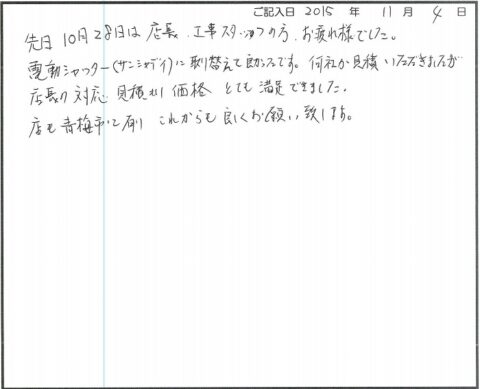 ご記入日 2015 年 11 月 4 日
先日10月28日は店長、工事スタッフの方、お疲れ様でした。
電動シャッター(サンシャディ)に取替えて助かってます。何社か見積いただきましたが
店長の対応 見積り 価格 とても満足できました。
店も青梅市に有り これからも良くお願い致します。